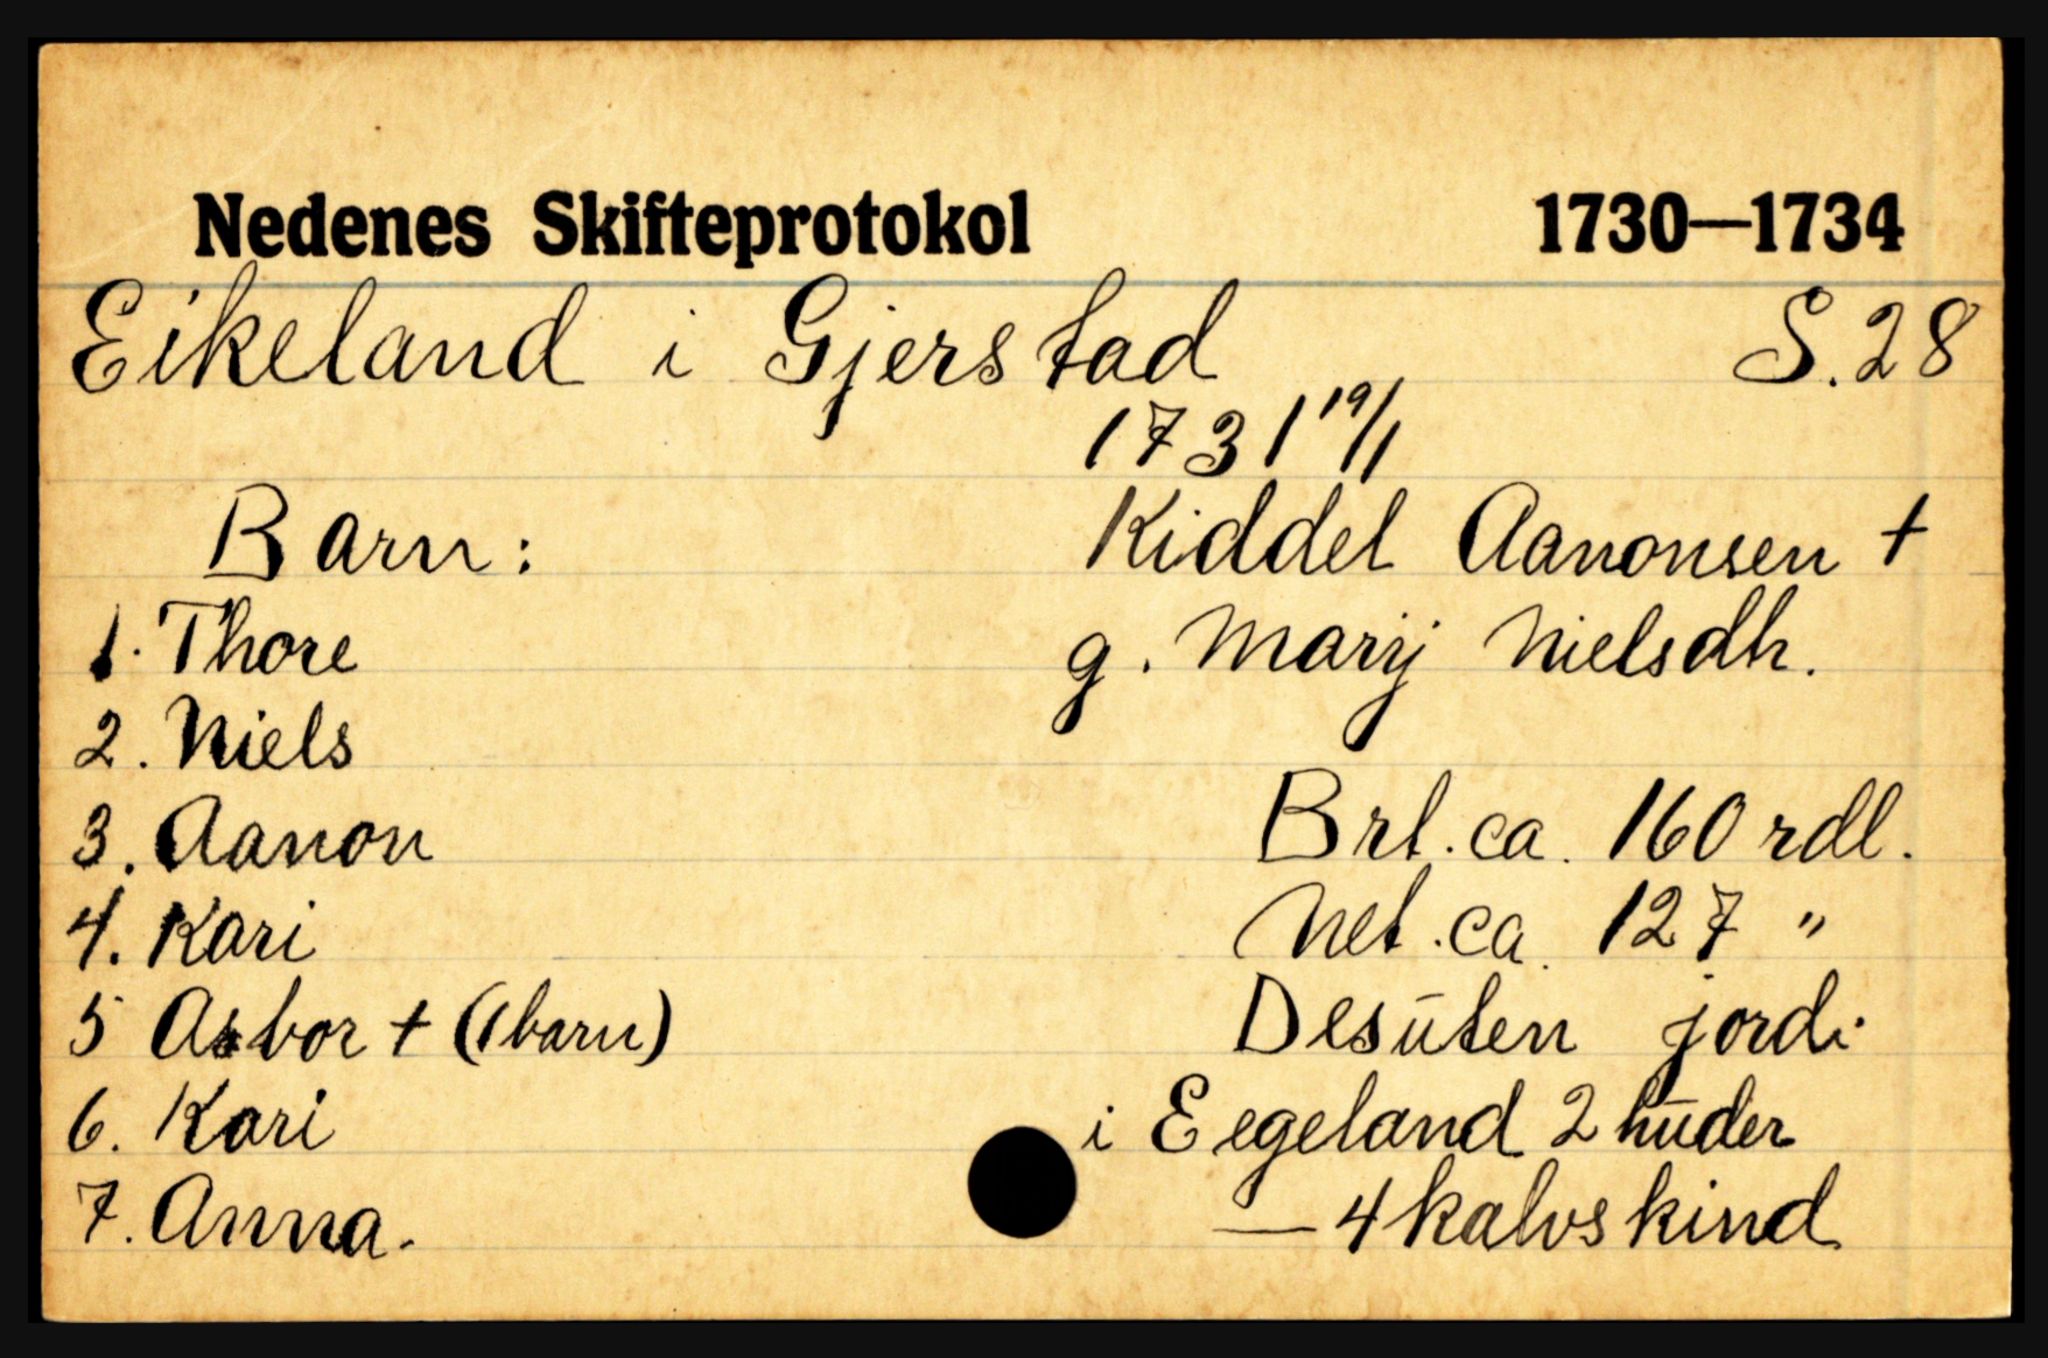 Nedenes Skifteprotokol 1730—1734
Eikeland i Gjerstad S. 28
1731 19/1
Barn: Kiddel Aanonsen †
1. Thore g. Marij Nielsdh.
2. Niels
3. Aanon Brt. ca. 160 rdl.
4. Kari Net. ca. 127 "
5 Asbor † (1 barn) Desūten jordi
6. Kari i Eegeland 2 hūder
7. Anna. — 4 kalvskind